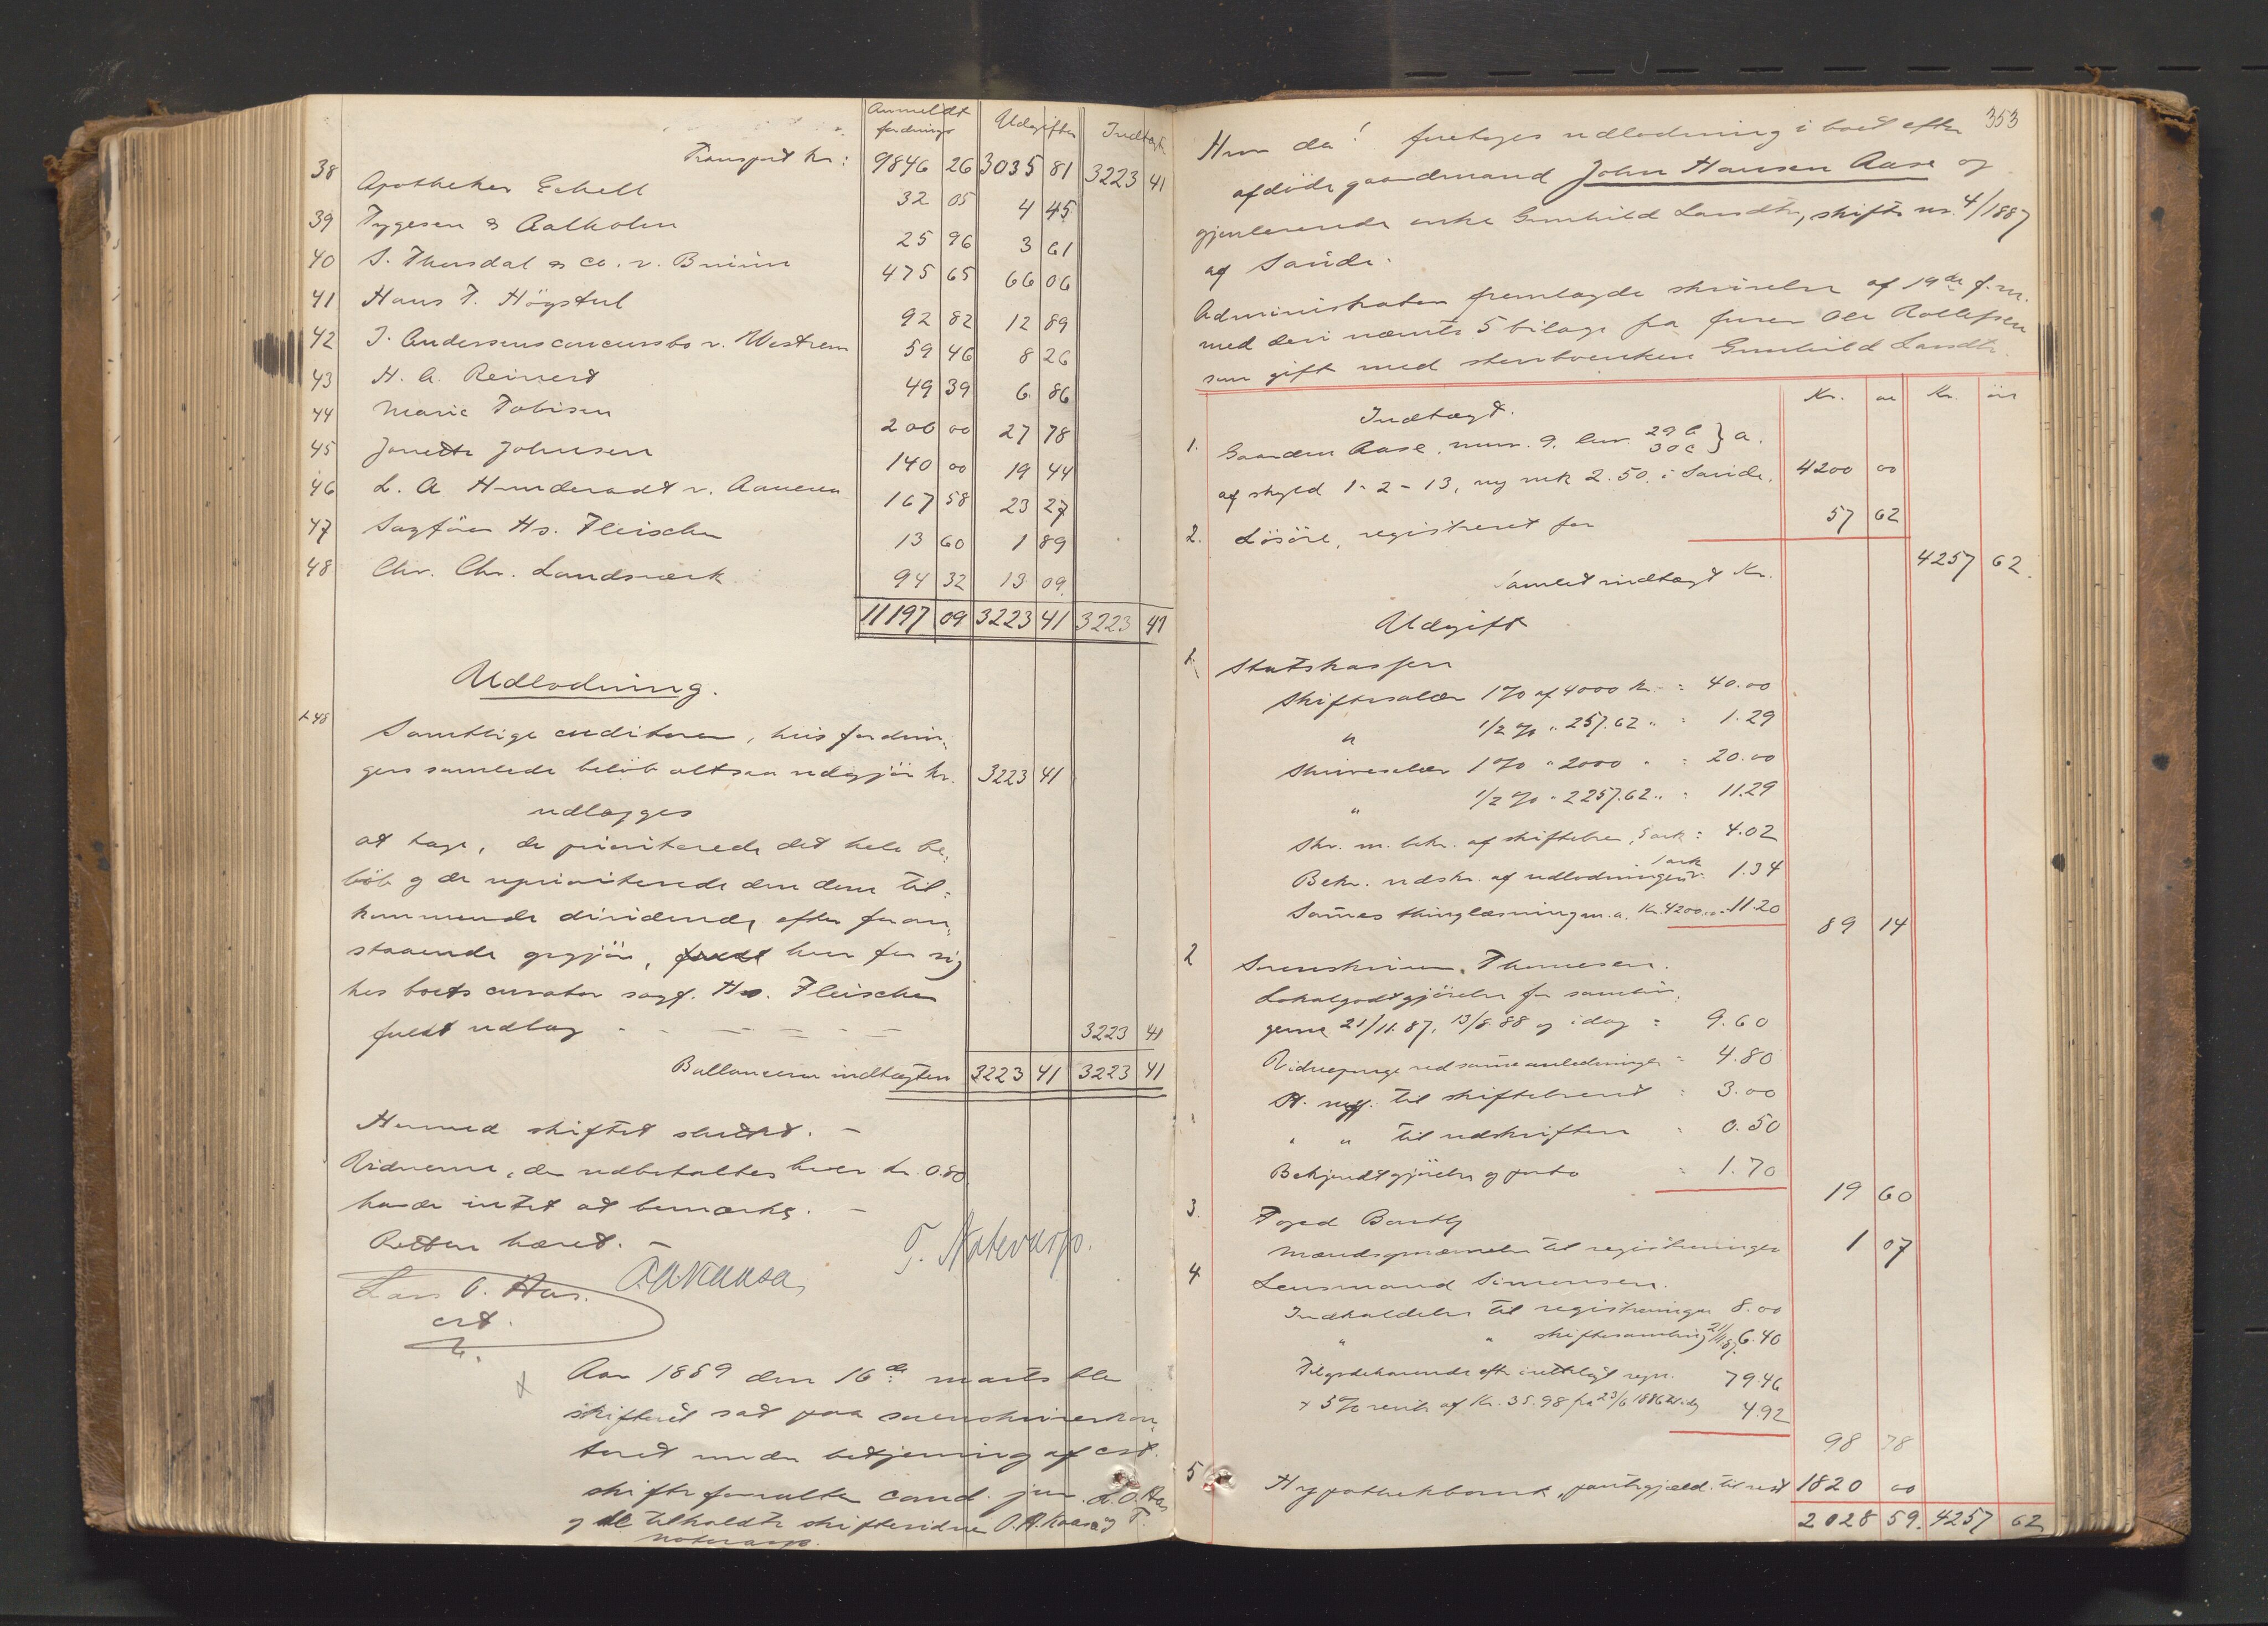 Anmeldt Udgifter Indtægt
fordringer
Transport kr: 9846 26 3035 81 3223 41
38 Apotheker Eckell 32 05 4 45
39 Tygesen & Aalholm 25 96 3 61
40 S. Thorsdal & Co. v. Bruun 475 65 66 06
41 Hans T. Högstul 92 82 12 89
42 J. Anderssens concursbo v. Westrem 59 46 8 26
43 H. A. Reinert 49 39 6 86
44 Marie Tobisen 200 00 27 78
45 Janette Johnsen 140 00 19 44
46 L. A. v. Aanesen 167 58 23 27
47 Sagförer Hs. Fleischer 13 60 1 89
48 Chr. Chr. Landsværk 94 32 13 09
11197 09 3223 41 3223 41
Udlodning.
1-48 Samtlige creditorer, hvis fordrin-
gers samlede belöb altsaa udgjör kr. 3223 41
udlægges
at tage, de prioriterede det hele be-
löb og de uprioriterede den dem til-
kommende dividende, efter foran-
staaende opgjör, hver for sig
hos boets curator sagf. Hs. Fleischer
fuldt udlæg - - - - - - 3223 41
Ballancerer indtægten 3223 41 3223 41
Hermed skiftet sluttet. -
Vidnerne, der udbetaltes hver kr. 0.80
havde intet at bemærke. -
Retten hævet. -
Lars O. Aas.
cst.
T. Natvarp.
Aar 1889 den 16de marts blev
skifteret sat paa sorenskriverkon-
toret under betjening af cst.
skifteforvalter cand. jur. L. O. Aas
og de tilholdte skiftevidner O. A. Kaasa og T.
353
Hvor da! foretoges udlodning i boet efter
afdöde gaardmand John Hansen Aase og
gjenlevende enke Gunhild Larsdtr, skifte nr. 4/1887
af Sauide.
Administrator fremlagde skrivelse af 19de f. m.
med deri nævnte 5 bilage fra Ole Rollefsen
som gift med sterboenken Gunhild Larsdtr.
Kr. ör Kr. ör
Indtægt.
1. Gaarden Aase, mnr. 9. lnr. 29 b 30 c } a.
af skyld 1-2-13, ny mrk 2.50 i Sauide. 4200 00
2. Lösöre, registreret for 57 62
Samlet indtægt Kr. 4257 62.
Udgift
1. Statskassen
Skiftesalær 1% af 4000 kr. = 40.00
" 1/2 % " 257.62 " = 1.29
Skriversalær 1% " 2000 " = 20.00
" 1/2 % " 2257.62 " = 11.29
Skr. m. bekr. af skiftebrev, 3 ark = 4.02
Bekr. udskr. af udlodningen 1 ark = 1.34
Sammes thinglæsning m. a. Kr. 4200 = 11.20
89 14
2 Sorenskriver Thomesen.
Lokalgodtgjörelse for samlin-
gerne 21/11.87, 13/8.88 og idag = 9.60
Vidnepenge ved samme anledninger = 4.80
St. pap. til skiftebrevet = 3.00
" " til udskriften = 0.50
Bekjendtgjörelse og porto = 1.70
19 60
3. Foged Barth
Mændsopnævnelse til registreringen 1 07
4 Lensmand Simonsen.
Indkaldelse til registreringen 8.00
" " skiftesamling 21/11.87. 6.40
Tilgodehavende efter fremlagt regn. 79.46
+ 5% rente af Kr. 35.98 fra 23/6 1886 til idag 4.92
98 78
5 Hypothekbank, pantegjæld til rest 1820 00
2028 59. 4257 62